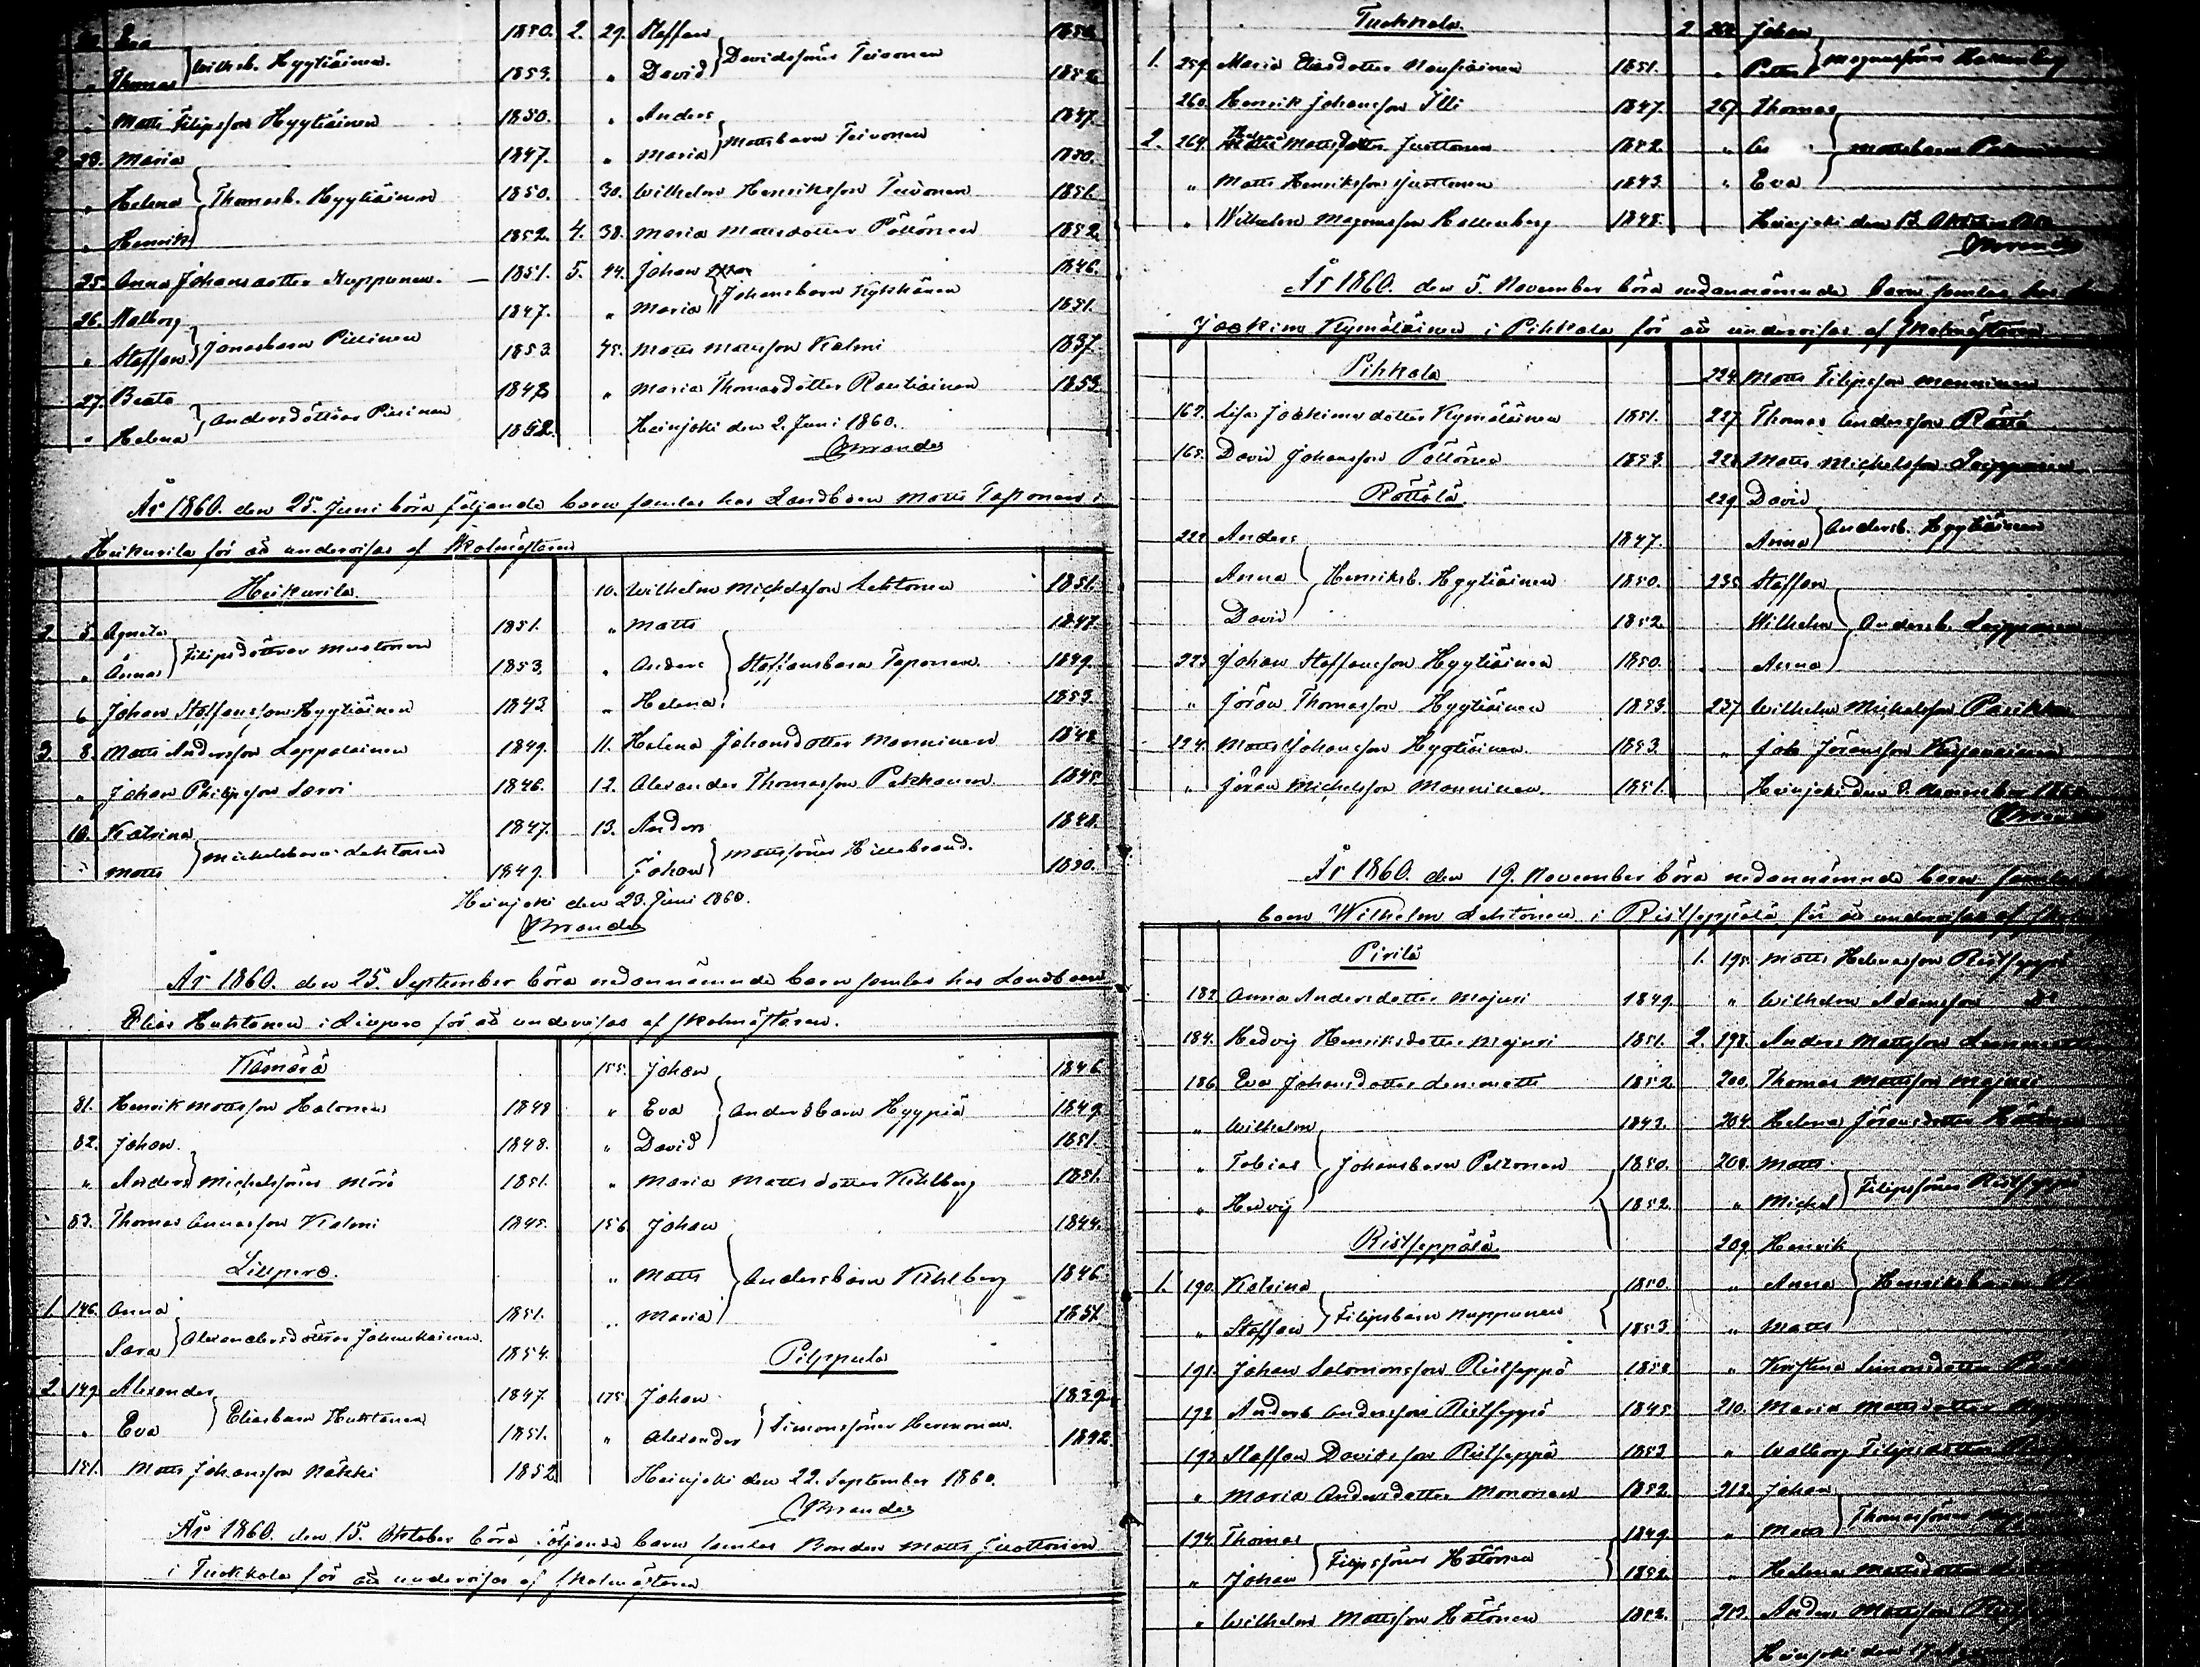 Eva
Thomas } Wilhelmsb. Hyytiäinen. 1850. 1853.
" Matts Filipsson Hyytiäinen 1850.
2. 23. Maria 1847.
" Helena } Thomasb. Hyytiäinen 1850.
" Henrik 1852.
25. Anna Johansdotter Kuppanen. 1851.
26. Walborg 1847.
" Staffan } Jonasbarn Pitkinen 1853.
27. Beata 1848
" Helena } Andersdöttrar Pirinen 1852.
2. 29. Staffan 1850.
" David } Davidssöner Teivonen 1852.
" Anders 1847.
" Maria } Mattsbarn Teivonen 1850.
30. Wilhelm Henriksson Teivonen 1851.
4. 38. Maria Mattsdotter Pöllönen 1852.
5. 44. Johan 1846.
" Maria } Johansbarn Kykkänen 1851.
45. Matts Mattsson Kalmi 1837.
" Maria Thomasdotter Rautiainen 1853.
Heinjoki den 2. Juni 1860.
Brander
År 1860. den 25. Juni böra följande barn samlas hos Landbon Matts Taponen i
Heikurila för att undervisas af Skolmästaren
Heikurila
2 5. Agneta 1851.
" Anna } Filipsdöttrar Mustonen 1853.
6 Johan Staffansson Hyytiäinen 1843
3. 8. Matts Andersson Lappalainen 1849.
" Johan Philipsson Sarvi 1846.
10. Katrina 1847.
" Matts } Michelsbarn Lehtonen 1849.
10. Wilhelm Michelsson Lehtonen 1851.
" Matts 1847.
" Anders } Staffansbarn Taponen 1849.
" Helena 1853.
11. Helena Johansdotter Manninen 1848
12. Alexander Thomasson Pakkanen 1845.
13. Anders 1848.
Johan } Mattssöner Hillebrand. 1850.
Heinjoki den 23. Juni 1860.
Brander
År 1860. den 25. September böra nedannämnde barn samlas hos Landbon
Elias Huhtanen i Liepero för att undervisas af skolmästaren.
Kämärä
81. Henrik Mattsson Halonen 1848
82. Johan 1848.
" Anders } Michelssöner Mörö 1851.
83. Thomas Annasson Kalmi 1845.
Liepero.
1. 146. Anna 1851.
Sara } Alexandersdöttrar Johunkainen. 1854.
2 149. Alexander 1847.
" Eva } Eliasbarn Huhtanen 1851.
151. Matts Johansson Näkki 1852
155. Johan 1846
" Eva } Andersbarn Hyypiä 1849.
" David 1851.
" Maria Mattsdotter Kihlberg 1851.
156 Johan 1844.
" Matts } Andersbarn Kihlberg 1846
" Maria 1851
Pilppula
175. Johan 1839
" Alexander } Simonssöner Hermonen. 1842.
Heinjoki den 22. September 1860.
Brander
År 1860. den 15. Oktober böra följande barn samlas Bonden Matts Juottonen
i Tuokkola för att undervisas af skolmästaren
Tuokkola.
1. 259. Maria Eliasdotter Nousiainen 1851.
260. Henrik Johansson Illi 1847.
2. 264. Mattsdotter Juottonen 1852
" Matts Henriksson Juottonen 1843.
" Wilhelm Magnusson Hallenberg 1848.
2 Johan
" Petter } Magnussöner Hallenberg
267. Thomas
"
" Eva } Mattsbarn
Heinjoki den 13. Oktober
Brander
År 1860. den 5. November böra nedannämnde barn samlas hos
Joakim Kymäläinen i Pihkala för att undervisas af skolmästaren
Pihkala
162. Lisa Joakimsdotter Kymäläinen 1851.
165. David Johansson Pöllönen 1853.
Rättälä
222. Anders 1847.
Anna } Henriksb. Hyytiäinen 1850.
David 1852
223 Johan Staffansson Hyytiäinen 1850.
" Jöran Thomasson Hyytiäinen 1853.
224. Matts Johansson Hyytiäinen. 1853.
" Jöran Michelsson Manninen. 1851.
224. Matts Filipsson Manninen
227. Thomas Andersson Rättö
228. Matts Michelsson Leppänen
229. David
Anna } Andersb. Hyytiäinen
235. Staffan
Wilhelm } Andersb. Leppänen
Anna
237. Wilhelm Michelsson Parikka
" Job Jöransson
Heinjoki den 3. November 1860
Brander
År 1860. den 19. November böra nedannämnde barn samlas
Wilhelm Lehtonen i Ristseppälä för att undervisas af
Pirilä
182 Anna Andersdotter Majuri 1849.
184. Hedvig Henriksdotter Majuri 1851.
186 Eva Johansdotter Lensmatti 1852
" Wilhelm 1843.
" Tobias } Johansbarn Peltonen 1850.
" Hedvig 1852.
Ristseppälä
1. 190. Katrina 1850.
" Staffan } Filipsbarn Nuppunen 1853.
191. Johan Salomonsson Ristseppä 1852
192 Anders Andersson Ristseppä 1845.
193 Staffan Davidsson Ristseppä 1853
" Maria Andersdotter Mononen 1852.
194. Thomas 1849.
" Johan } Filipssöner Hätönen 1852.
" Wilhelm Mattsson Hätönen 1852.
1. 195. Matts Helenasson Ristseppä
" Wilhelm Adamsson Do
2. 198. Anders Mattsson
200. Thomas Mattsson Majuri
204. Helena Jöransdotter Hätönen
208. Matts
" Michel } Filipssöner Ristseppä
209. Henrik
" Anna } Henriksbarn
" Matts
" Kristina Simonsdotter
210. Maria Mattsdotter
" Walborg Filipsdotter
212. Johan
" Matts } Thomassöner
" Helena Mattsdotter
213. Anders Mattsson
Heinjoki den 17